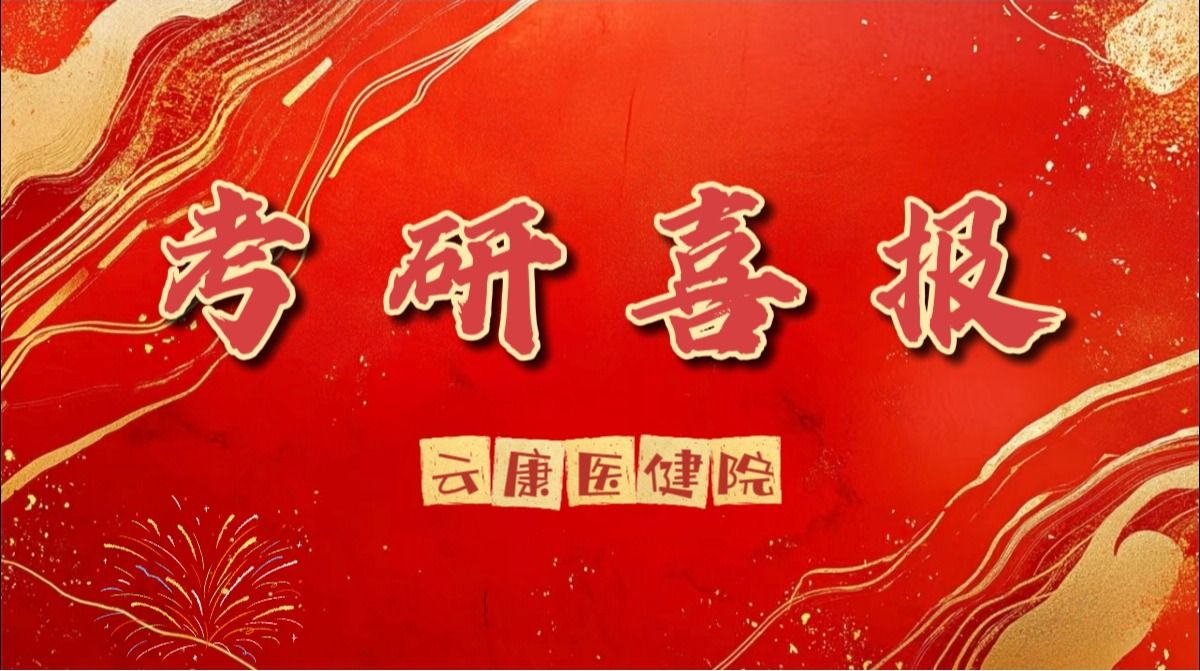 考研喜报
云康医健院